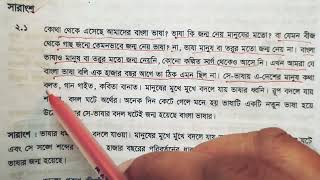 সারাংশ
২.১ কোথা থেকে এসেছে আমাদের বাংলা ভাষা? ভাষা কি জন্ম নেয় মানুষের মতো? বা যেমন বীজ
থেকে গাছ জন্মে তেমনভাবে জন্ম নেয় ভাষা? না, ভাষা মানুষ বা তরুর মতো জন্ম নেয় না। বাংলা
ভাষাও মানুষ বা তরুর মতো জন্ম নেয়নি, কোনো কল্পিত স্বর্গ থেকেও আসে নি। এখন আমরা যে
বাংলা ভাষা বলি এক হাজার বছর আগে তা ঠিক এমন ছিল না। সে-ভাষায় এ-দেশের মানুষ কথা
বলত, গান গাইত, কবিতা বানাত। মানুষের মুখে মুখে বদলে যায় ভাষার ধ্বনি। রূপ বদলে যায়
বদল ঘটে অর্থের। অনেক দিন কেটে গেলে মনে হয় ভাষাটি একটি নতুন ভাষা হয়ে
সে-ভাষার বদল ঘটেই জন্ম হয়েছে বাংলা ভাষার।
সারাংশ : ভাষার ধর্মই বদলে যাওয়া। মানুষের মুখে মুখে বদলে যায় ভাষার
এবং সে সঙ্গে শব্দের হাজার বছরের পরিবর্তনের
জন্ম হয়েছে।